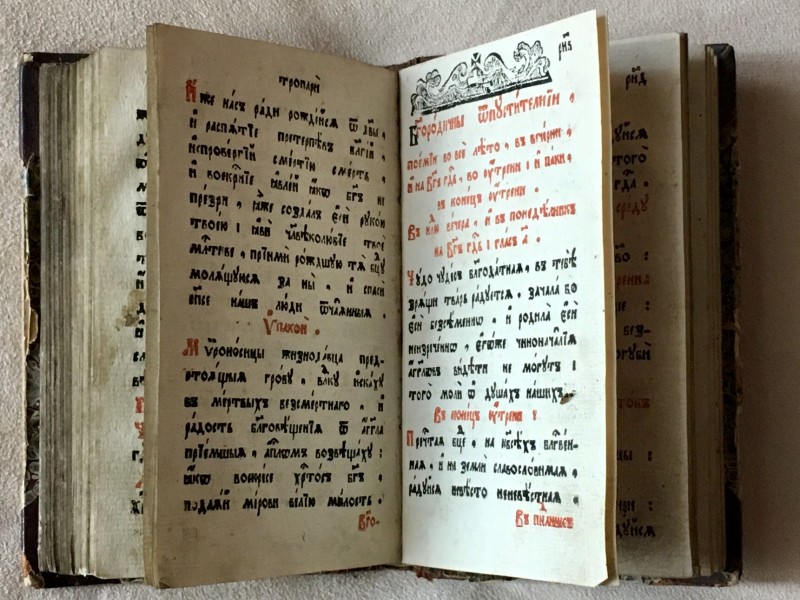 тропарѝ
И҆́же на́съ ра́ди рожде́йсѧ ѿ дв҃ы,
и҆ распѧ́тїе претерпѣ́въ бл҃гі́й,
и҆спрове́ргїй сме́ртїю сме́рть,
и҆ воскр҃нїе ꙗ҆вле́й ꙗ҆́кѡ бг҃ъ не
пре́зри, ꙗ҆̀же созда́лъ є҆сѝ рꙋко́ю
твое́ю і ꙗ҆вѝ чл҃вѣколю́бїе твоѐ
мл҃тиве, прїимѝ ро́ждшꙋю тѧ̀ бц҃ꙋ
молѧ́щꙋюсѧ за ны̀, и҆ спасѝ
сп҃се на́шъ лю́ди ѿча́ѧнныѧ.
Ѵ҆пакоѝ.
Мѵ̈роно́сицы жизнода́вца пред-
стоѧ́щыѧ гро́бꙋ, влⷣкꙋ и҆ска́хꙋ
въ ме́ртвыхъ безсме́ртнаго, и҆
ра́дость бл҃говѣще́нїѧ ѿ а҆́гг҃ла
прїе́мшыѧ, а҆пⷭ҇лѡмъ возвѣща́хꙋ:
ꙗ҆́кѡ воскре́се хрⷭ҇то́съ бг҃ъ,
подаѧ́й мі́рови ве́лїю ми́лость.
Бг҃о-
рн҃г
Бг҃оро́дичны ѿпꙋсти́телнїи,
пое́мїи во всѐ лѣ́то, въ вече́рни,
и҆ на Бг҃ъ гдⷭ҇ь, во ᲂу҆́трени і и҆ па́ки,
въ коне́цъ ᲂу҆́трени.
Въ нлⷣю ве́чера, и҆ въ понедѣ́лникъ
на Бг҃ъ гдⷭ҇ь і гла́съ а҃.
Чꙋ́до чꙋде́съ бл҃года́тнаѧ, въ тебѣ̀
зрѧ́щи тва́рь ра́дꙋетсѧ, зачала́ бо
є҆сѝ безсѣ́меннѡ, и҆ родила̀ є҆сѝ
неизрече́ннѡ, є҆го́же чинонача́лїѧ
а҆́гг҃лѡвъ ви́дѣти не мо́гꙋтъ і
того̀ молѝ ѡ҆ дꙋша́хъ на́шихъ.
Въ коне́цъ ᲂу҆́трени:
Пречⷭ҇таѧ бц҃е, на нб҃сѣ́хъ бл҃гве́н-
наѧ, и҆ на землѝ славосло́вимаѧ,
ра́дꙋйсѧ невѣ́сто неневѣ́стнаѧ.
Въ
рн҃д